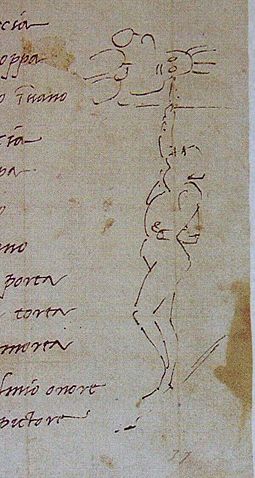 ccia
oppa
o iuano
cia
pa
o
ano
porta
torta
morta
lmio onore
pictore